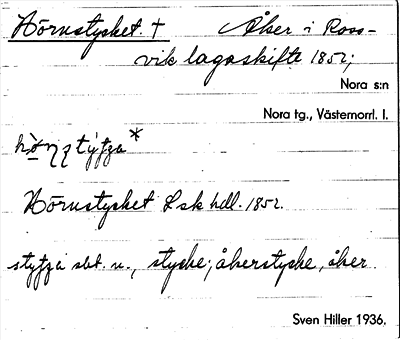 Hörnstycket. † Åker i Ross-
vik lagaskifte 1852;
Nora s:n
Nora tg., Västernorrl. l.
Hörnstycket Lsk hdl. 1852.
sbt. n., stycke; åkerstycke, åker
Sven Hiller 1936.